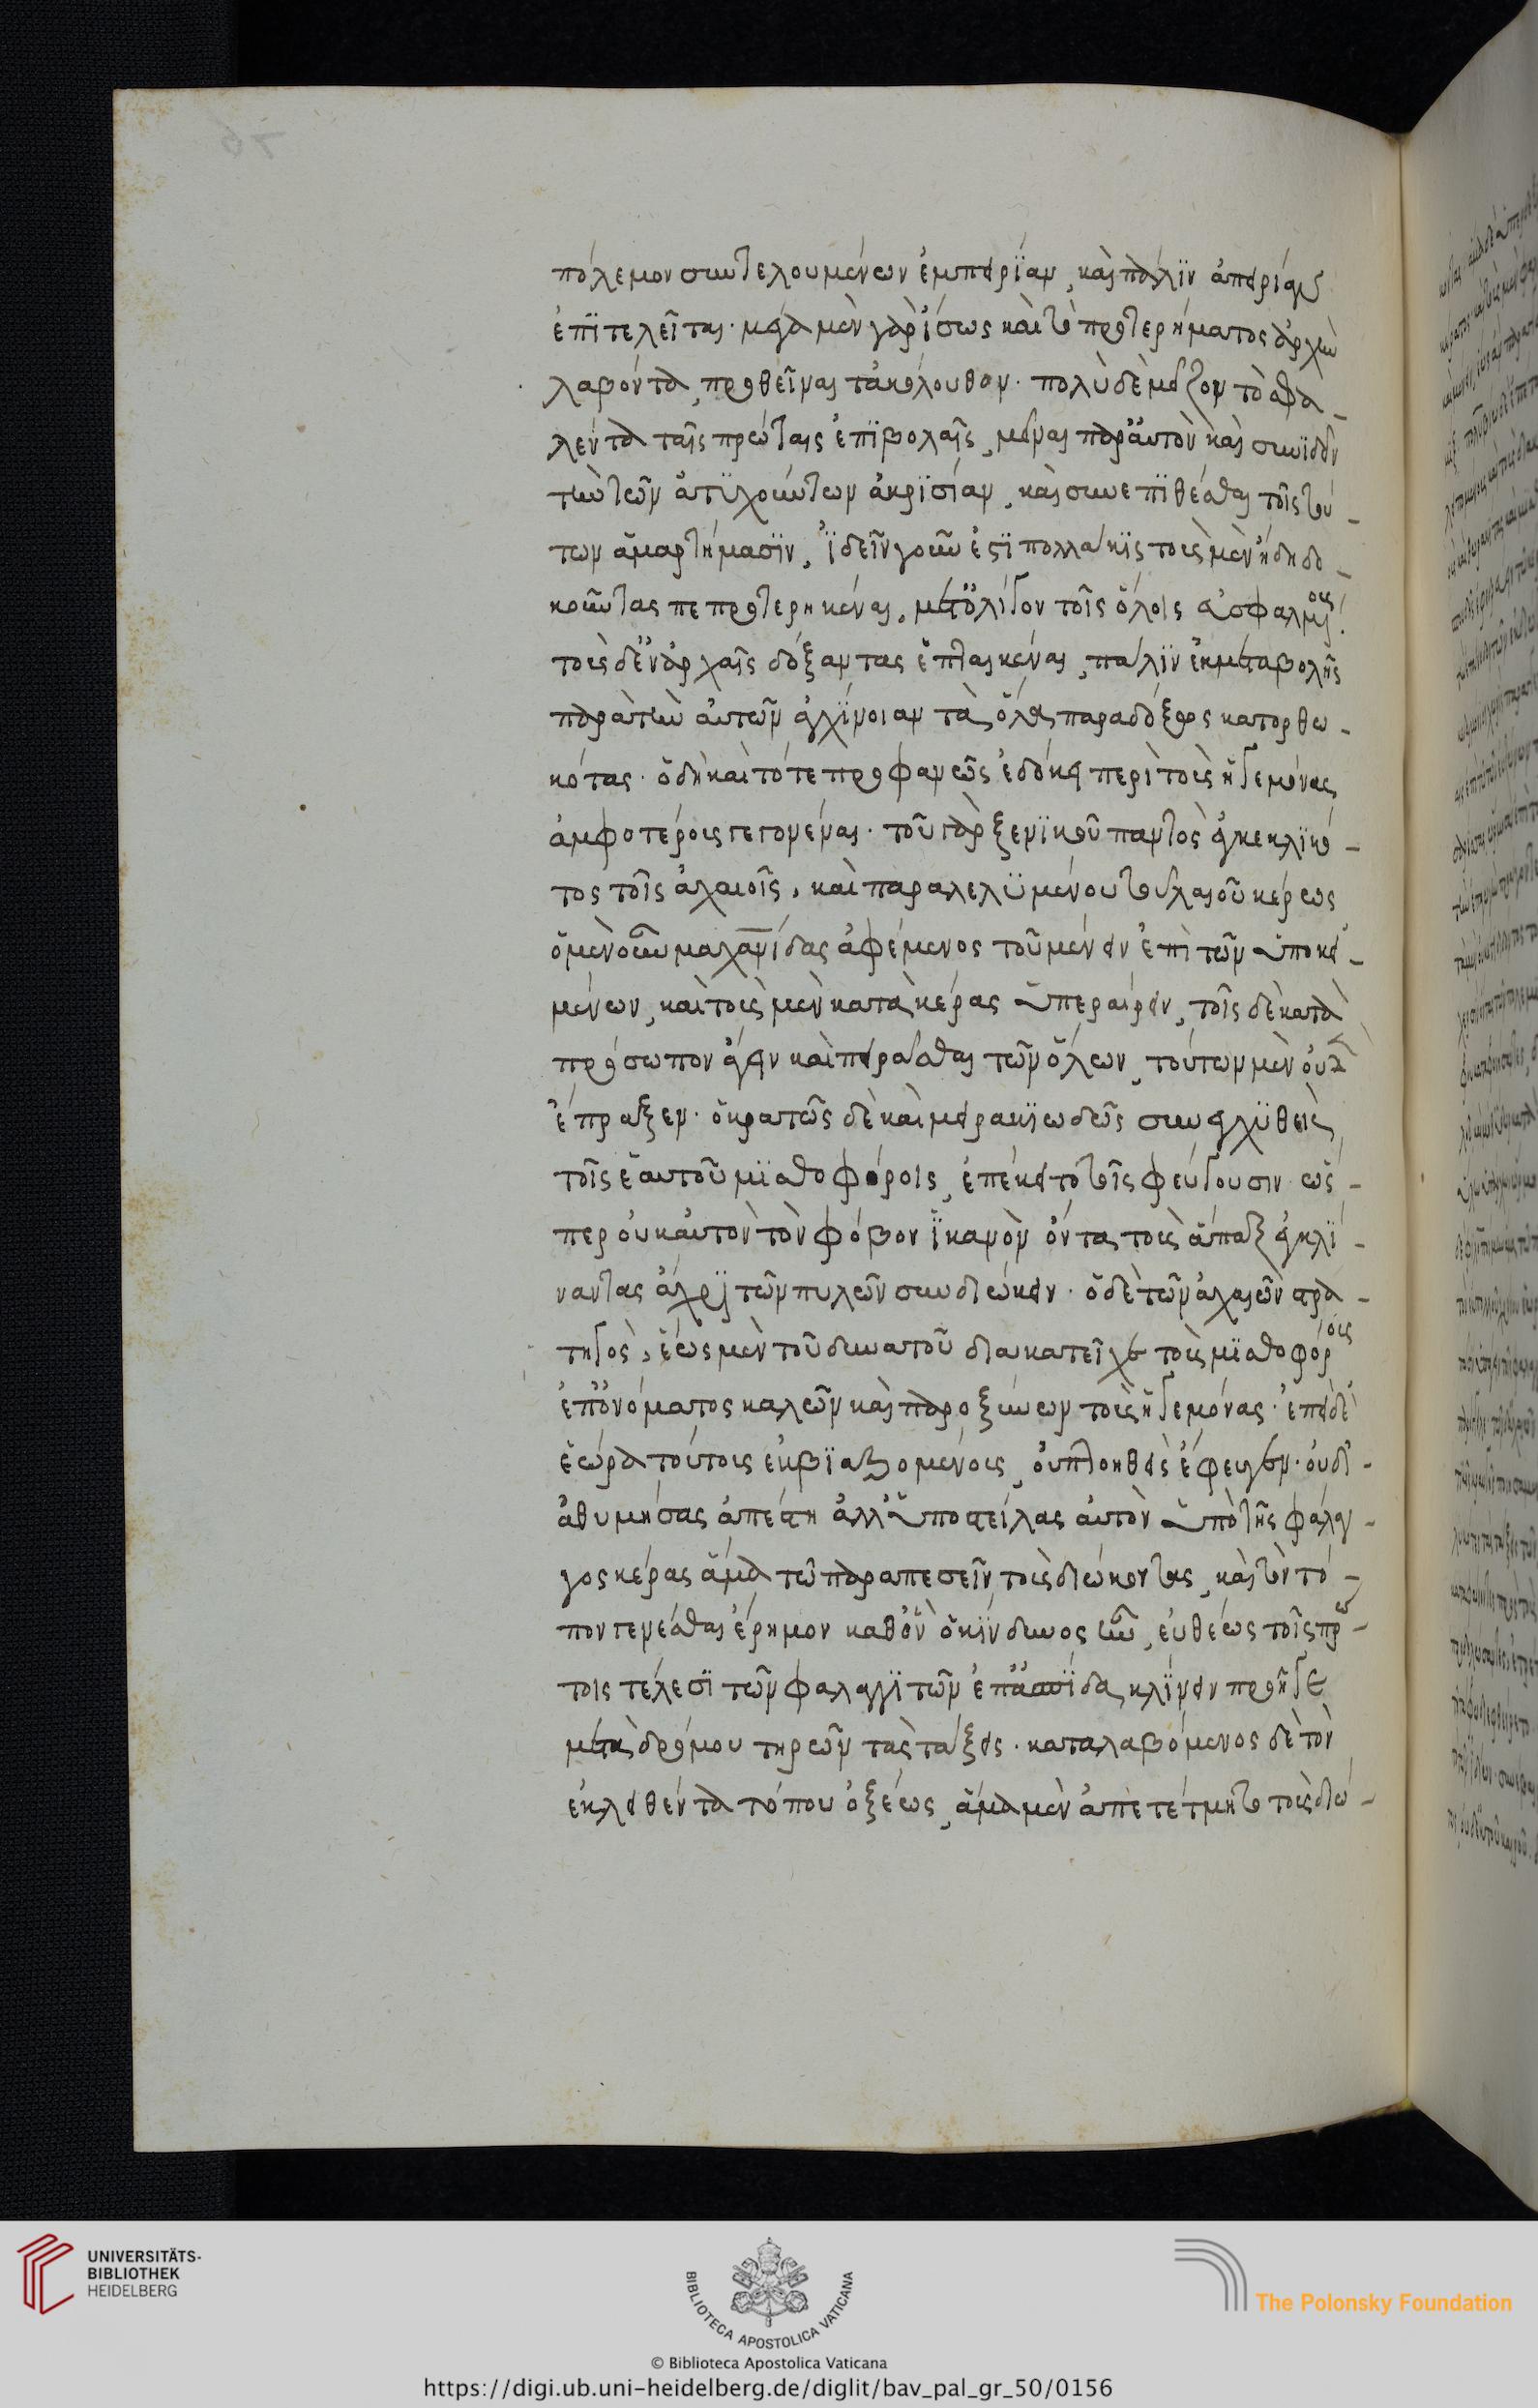 πόλεμον συντελουμένων ἐμπειρίαν, καὶ πάλιν ἀπειρίαν
ἐπιτελεῖται· μέγα μὲν γὰρ ἴσως καὶ τὸ προτερήματος ἀρχὴν
λαβόντα, προσθεῖναι τἀκόλουθον. πολὺ δὲ μεῖζον τὸ σφα-
λέντα ταῖς πρώταις ἐπιβολαῖς, μεῖναι παρ' αὑτὸν καὶ συνιδεῖν
τὴν τῶν εὐτυχούντων ἀκρισίαν, καὶ συνεπιθέσθαι τοῖς τού-
των ἁμαρτήμασιν. ἰδεῖν γοῦν ἐστὶ πολλάκις τοὺς μὲν ἤδη δο-
κοῦντας πεπροτερηκέναι, μετ' ὀλίγον τοῖς ὅλοις ἐσφαλμένους·
τοὺς δ' ἐν ἀρχαῖς δόξαντας ἐπταικέναι, πάλιν ἐκ μεταβολῆς
παρὰ τὴν αὑτῶν ἀγχίνοιαν τὰ ὅλα παραδόξως κατορθω-
κότας. ὃ δὴ καὶ τότε προφανῶς ἐδόκει περὶ τοὺς ἡγεμόνας
ἀμφοτέρους γεγονέναι. τοῦ γὰρ ξενικοῦ παντὸς ἐγκεκλικό-
τος τοῖς ἀχαιοῖς, καὶ παραλελυμένου τοῦ λαιοῦ κέρεως
ὁ μὲν οὖν μαχανίδας ἀφέμενος τοῦ μένειν ἐπὶ τῶν ὑποκει-
μένων, καὶ τοὺς μὲν κατὰ κέρας ὑπεραίρειν, τοῖς δὲ κατὰ
πρόσωπον ἄγειν καὶ πειρᾶσθαι τῶν ὅλων, τούτων μὲν οὐδὲν
ἔπραξεν. ἀκρατῶς δὲ καὶ μειρακιωδῶς συνεκχυθεὶς
τοῖς ἑαυτοῦ μισθοφόροις, ἐπέκειτο τοῖς φεύγουσιν ὥσ-
περ οὐκ αὐτὸν τὸν φόβον ἱκανὸν ὄντα τοὺς ἅπαξ ἐγκλί-
ναντας ἄχρι τῶν πυλῶν συνδιώκειν. ὁ δὲ τῶν ἀχαιῶν στρα-
τηγὸς, ἕως μὲν τοῦ δυνατοῦ διακατεῖχε τοὺς μισθοφόρους
ἐπ' ὀνόματος καλῶν καὶ παροξύνων τοὺς ἡγεμόνας. ἐπεὶ δὲ
ἑώρα τούτους ἐκβιαζομένους, οὐ πτοηθεὶς ἔφευγεν. οὐδ'
ἀθυμήσας ἀπέστη ἀλλ' ὑποστείλας αὑτὸν ὑπὸ τῆς φάλαγ-
γος κέρας ἅμα τῷ παραπεσεῖν τοὺς διώκοντας, καὶ τὸν τό-
πον γενέσθαι ἔρημον καθ' ὃν ὁ κίνδυνος ἦν, εὐθέως τοῖς πρώ-
τοις τέλεσι τῶν φαλαγγιτῶν ἐπ' ἀσπίδα κλίνειν προῆγε
μετὰ δρόμου τηρῶν τὰς τάξεις. καταλαβόμενος δὲ τὸν
ἐκλειφθέντα τόπον ὀξέως, ἅμα μὲν ἀπετέτμητο τοὺς διώ-
UNIVERSITÄTS-
BIBLIOTHEK
HEIDELBERG
BIBLIOTECA APOSTOLICA VATICANA
The Polonsky Foundation
© Biblioteca Apostolica Vaticana
https://digi.ub.uni-heidelberg.de/diglit/bav_pal_gr_50/0156